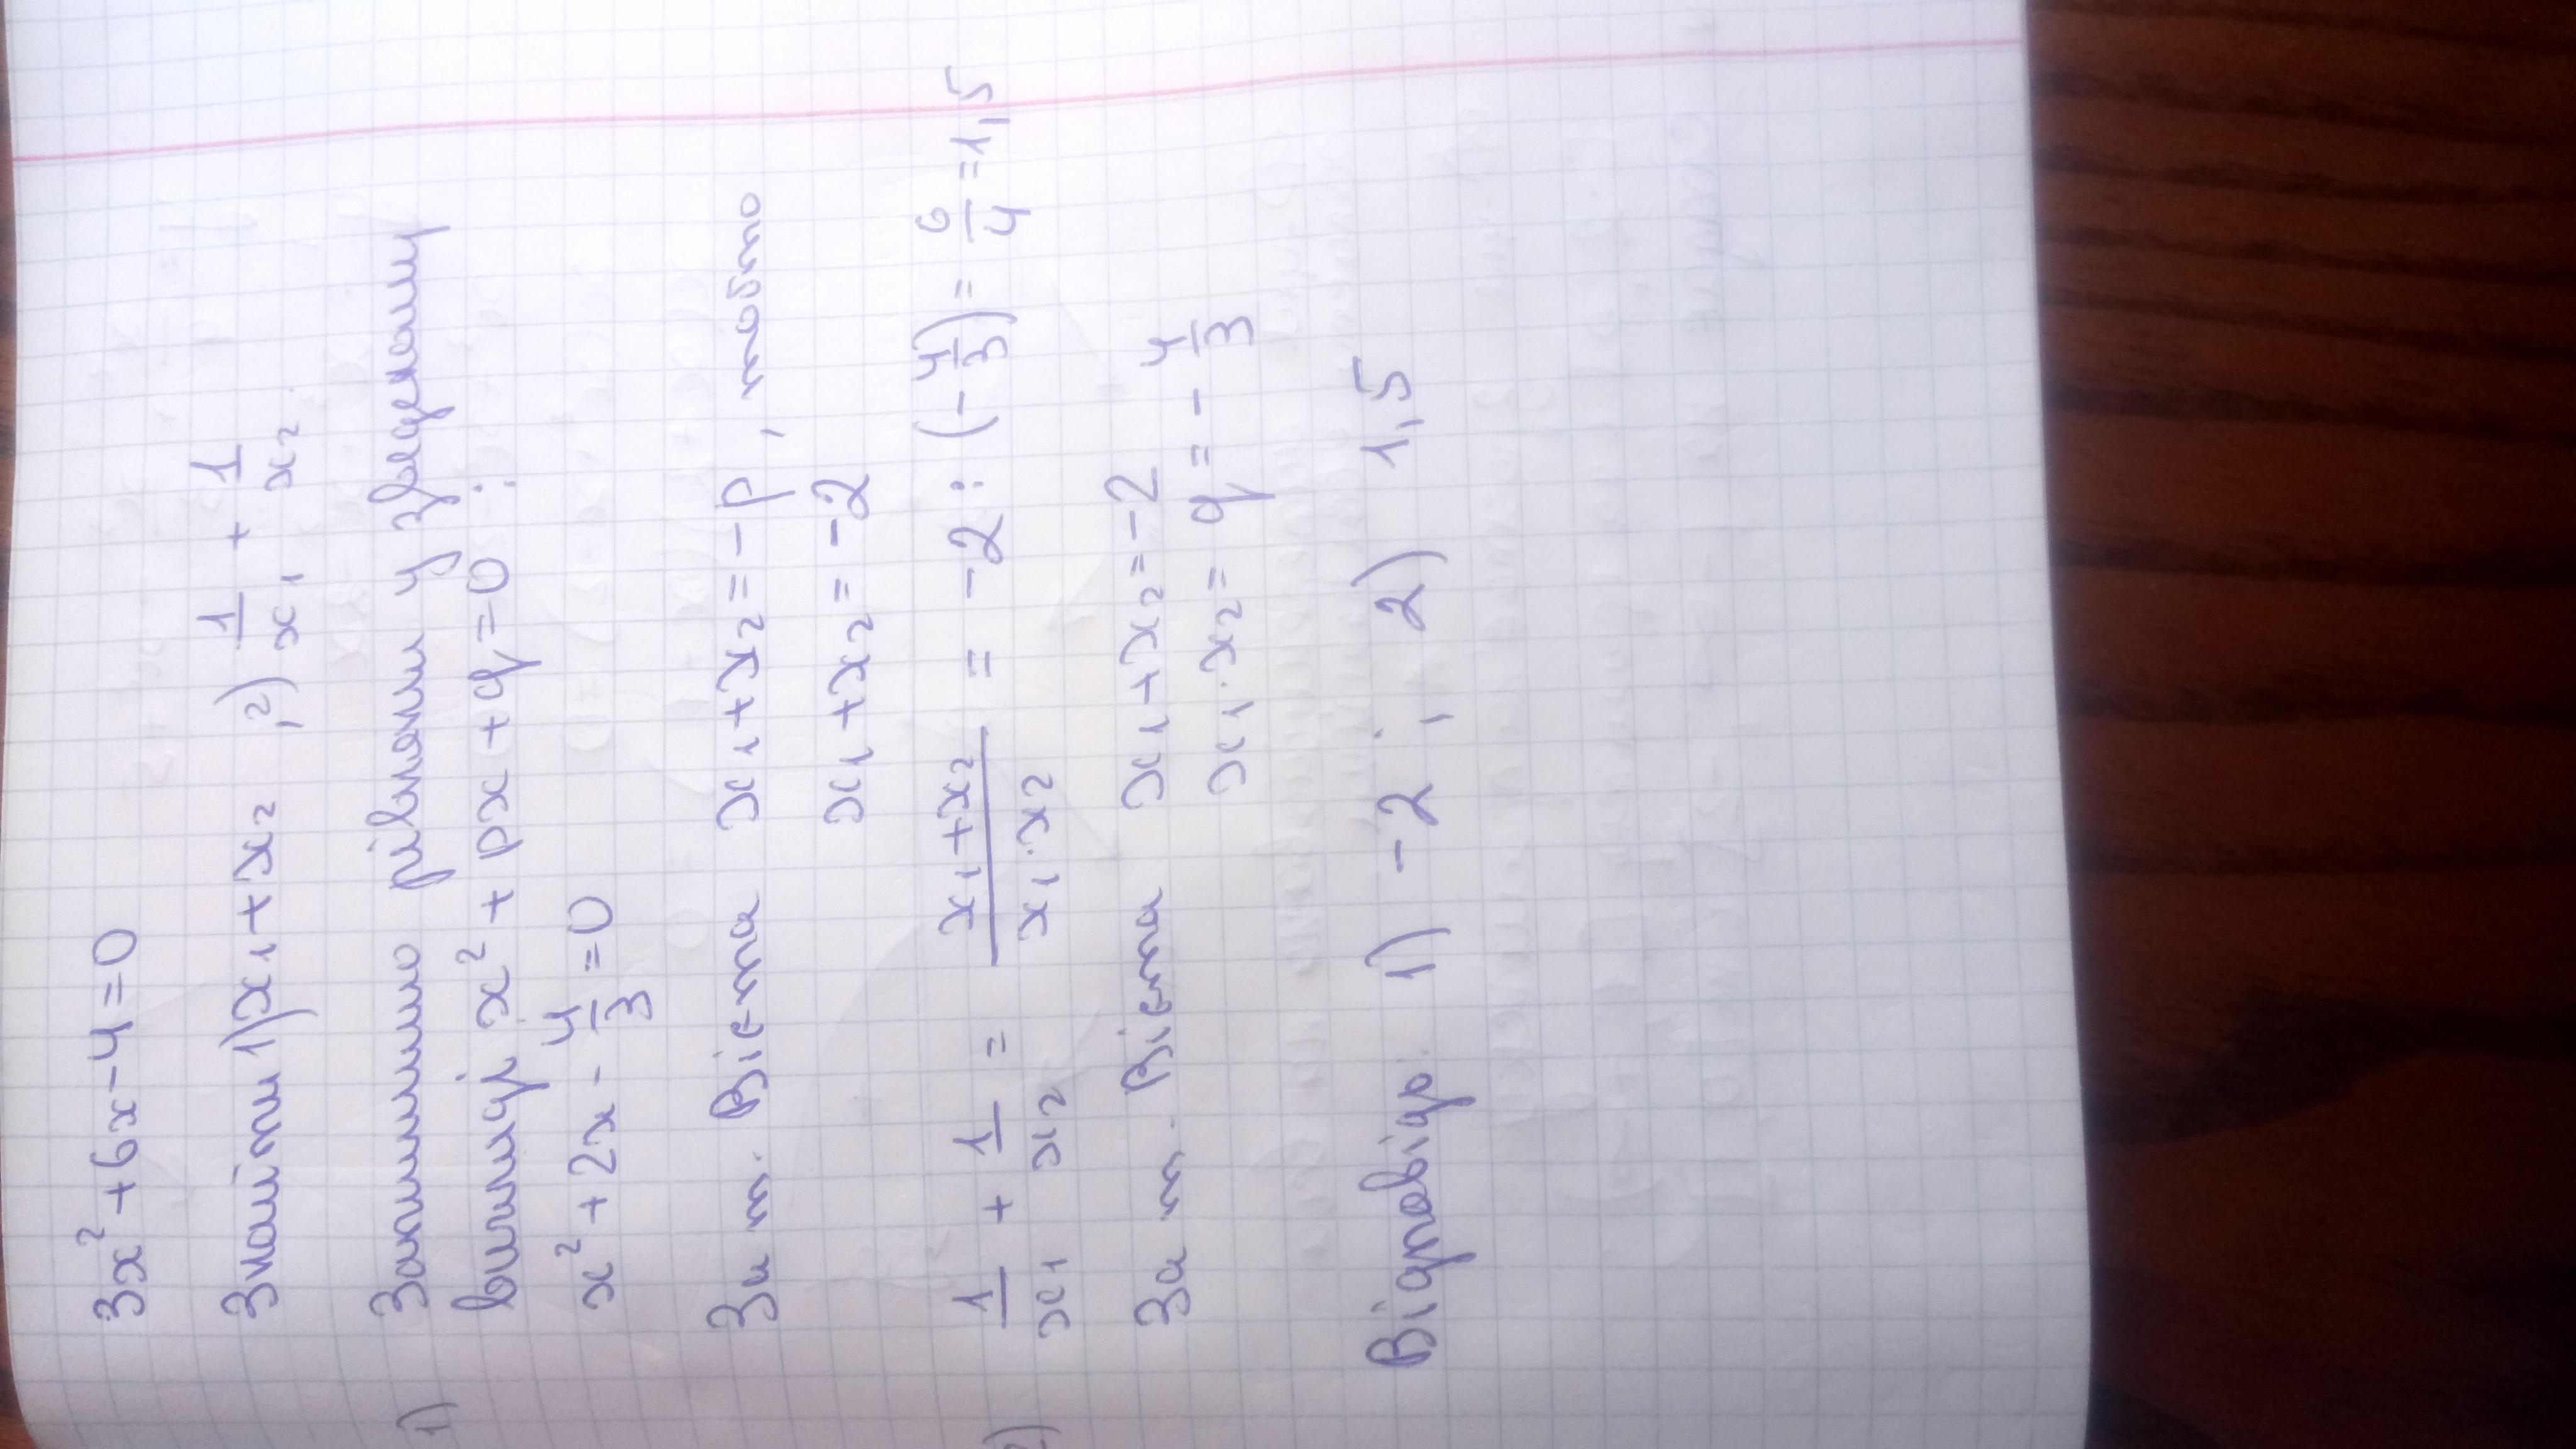 3x² + 6x - 4 = 0
Знайти 1) x₁ + x₂ , 2) 1/x₁ + 1/x₂.
1) Запишимо рівнони у зведеному
вигляді x² + px + q = 0 :
x² + 2x - 4/3 = 0
За т. Вієта x₁ + x₂ = -p , тобто
x₁ + x₂ = -2
2) 1/x₁ + 1/x₂ = (x₁ + x₂)/(x₁ · x₂) = -2 : (-4/3) = 6/4 = 1,5
За т. Вієта x₁ + x₂ = -2
x₁ · x₂ = q = - 4/3
Відповідь: 1) -2 ; 2) 1,5